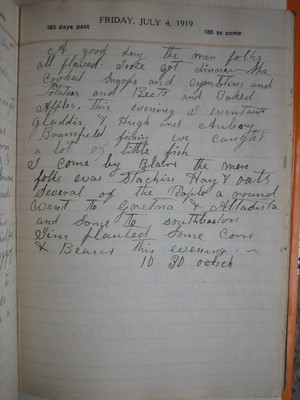 FRIDAY, JULY 4, 1919
185 days past
180 to come
A good day the men folks
all plowed. got dinner She
cooked and Dumplins and
Potatoes and Beets and Baked
Apples, this evening I went
Gladdis & Hugh and Aubory
Bransfield fishing we caught
a lot of little fish
I come by Blairs the men
folks was Stackins Hay & oats
Several of the People a round
went to Gretna & Altavista
and Some to
Slim planted Some Corn
& Beans this evening
10 30 oclock